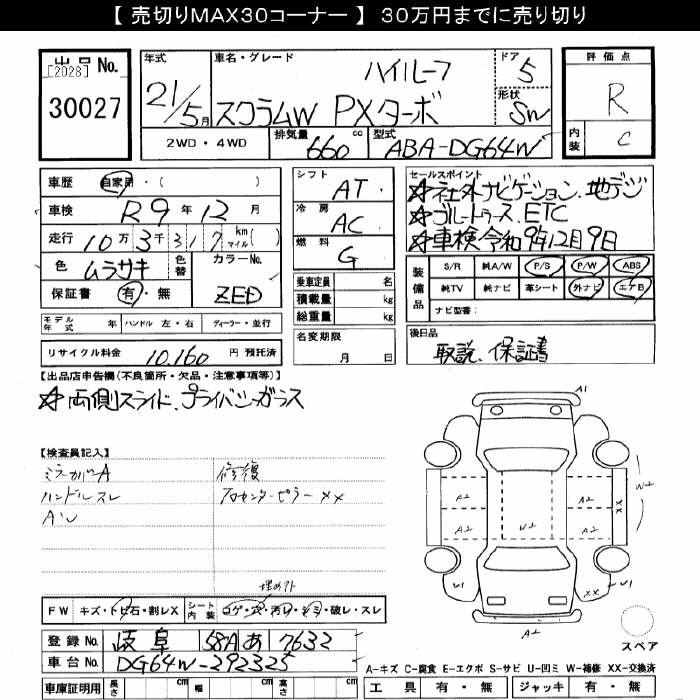 【 売切りMAX30コーナー 】 30万円までに売り切り
出品 No. [2028]
30027
年式 21/5月
車名・グレード ハイルーフ
スクラムW PXターボ
ドア 5
形状 SW
評価点 R
内装 C
2WD・4WD
排気量 660 cc
型式 ABA-DG64W
車歴 自家用・( )
車検 R9年12月
走行 10万3千317 km マイル( )
色 ムラサキ 色替
カラーNo. ZED
保証書 有・無
シフト AT
冷房 AC
燃料 G
乗車定員 名
積載量 kg
総重量 kg
名変期限 月 日
セールスポイント
☆社外ナビゲーション、地デジ
☆ブルートゥース、ETC
☆車検、令和9年12月9日
装備品
S/R 純A/W P/S P/W ABS
純TV 純ナビ 革シート 外ナビ エアB
ナビ型番:
モデル年式 年 ハンドル 左・右 ディーラー・並行
リサイクル料金 10,160 円 預託済
後日品 取説、保証書
【出品店申告欄(不良箇所・欠品・注意事項等)】
☆両側スライド、プライバシーガラス
【検査員記入】
ミラーカバーA
ハンドルスレ
修復
埋め穴
FW キズ・トビ石・割レX
シート内装 コゲ・穴・汚レ・シミ・破レ・スレ
登録No. 岐阜 581 あ 7632
車台No. DG64W-292325
車庫証明用 長さ cm 幅 cm 高さ cm
A1
A2 A2
A2 A2
U2
XX
W2
U1
XX
U1
A2
スペア
A-キズ C-腐食 E-エクボ S-サビ U-凹ミ W-補修 XX-交換済
工具 有・無 ジャッキ 有・無